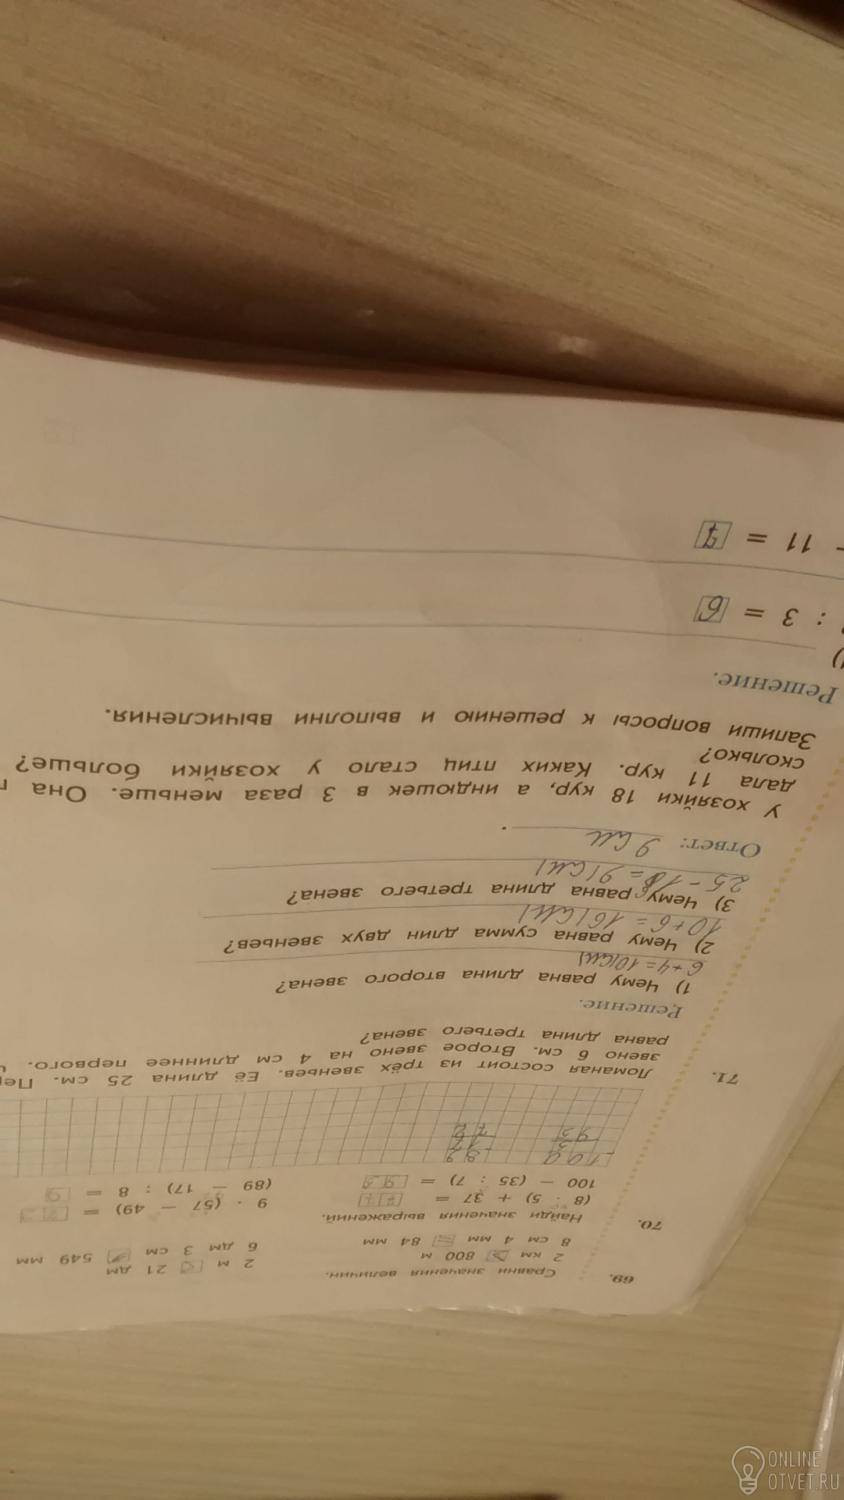 69.
Сравни значения величин.
2 км > 800 м
2 м < 21 дм
8 см 4 мм = 84 мм
6 дм 3 см > 549 мм
70.
Найди значения выражений.
(8 · 5) + 37 = 77
9 · (57 − 49) = 72
100 − (35 : 7) = 95
(89 − 17) : 8 = 9
71.
Ломаная состоит из трёх звеньев. Её длина 25 см.
звено 6 см. Второе звено на 4 см длиннее первого.
равна длина третьего звена?
Решение.
1) Чему равна длина второго звена?
6+4=10(см)
2) Чему равна сумма длин двух звеньев?
10+6=16(см)
3) Чему равна длина третьего звена?
25-16=9(см)
Ответ: 9 см.
У хозяйки 18 кур, а индюшек в 3 раза меньше. Она
дала 11 кур. Каких птиц стало у хозяйки больше?
сколько?
Запиши вопросы к решению и выполни вычисления.
Решение.
: 3 = 6
- 11 = 7
ONLINE
OTVET.RU